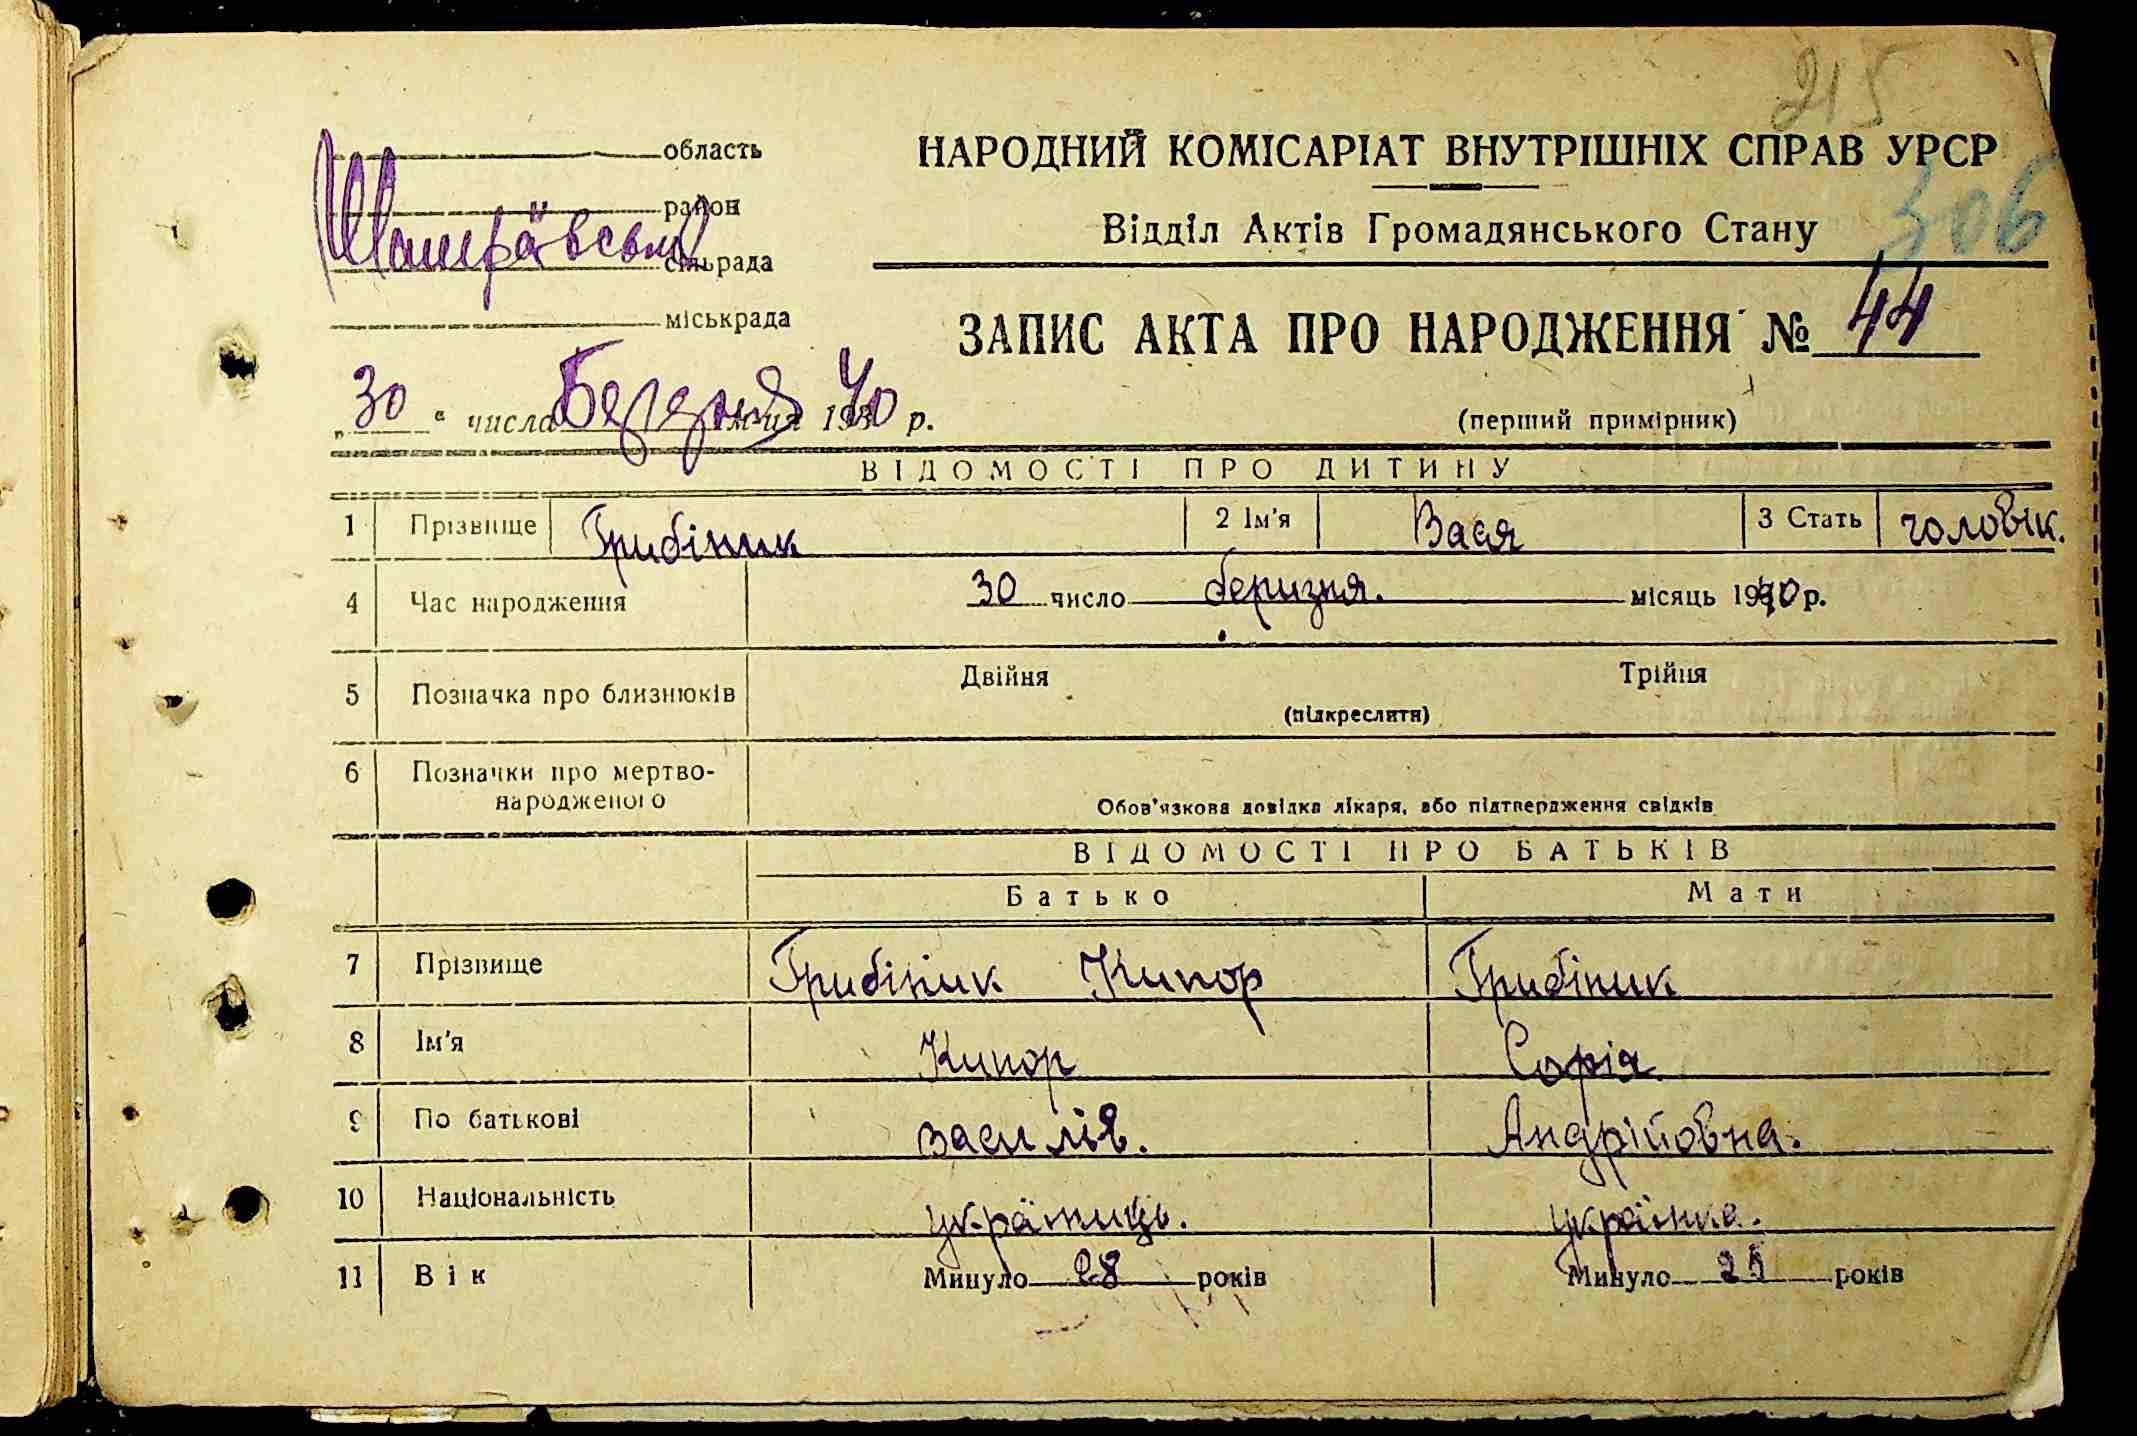 215
область
район
Шамраївська сільрада
міськрада
НАРОДНИЙ КОМІСАРІАТ ВНУТРІШНІХ СПРАВ УРСР
306
Відділ Актів Громадянського Стану
ЗАПИС АКТА ПРО НАРОДЖЕННЯ № 44
„30“ числа Березня м-ця 1940 р.
(перший примірник)
ВІДОМОСТІ ПРО ДИТИНУ
1 Прізвище Грибіник 2 Ім'я Вася 3 Стать чоловік.
4 Час народження 30 число беризня. місяць 1940 р.
5 Позначка про близнюків Двійня Трійня
(підкреслити)
6 Позначки про мертво-
народженого
Обов'язкова довідка лікаря, або підтвердження свідків
ВІДОМОСТІ ПРО БАТЬКІВ
Батько Мати
7 Прізвище Грибіник Кипор Грибіник
8 Ім'я Кипор Софія
9 По батькові василів. Андрійовна.
10 Національність україниць. українка.
11 Вік Минуло 28 років Минуло 25 років